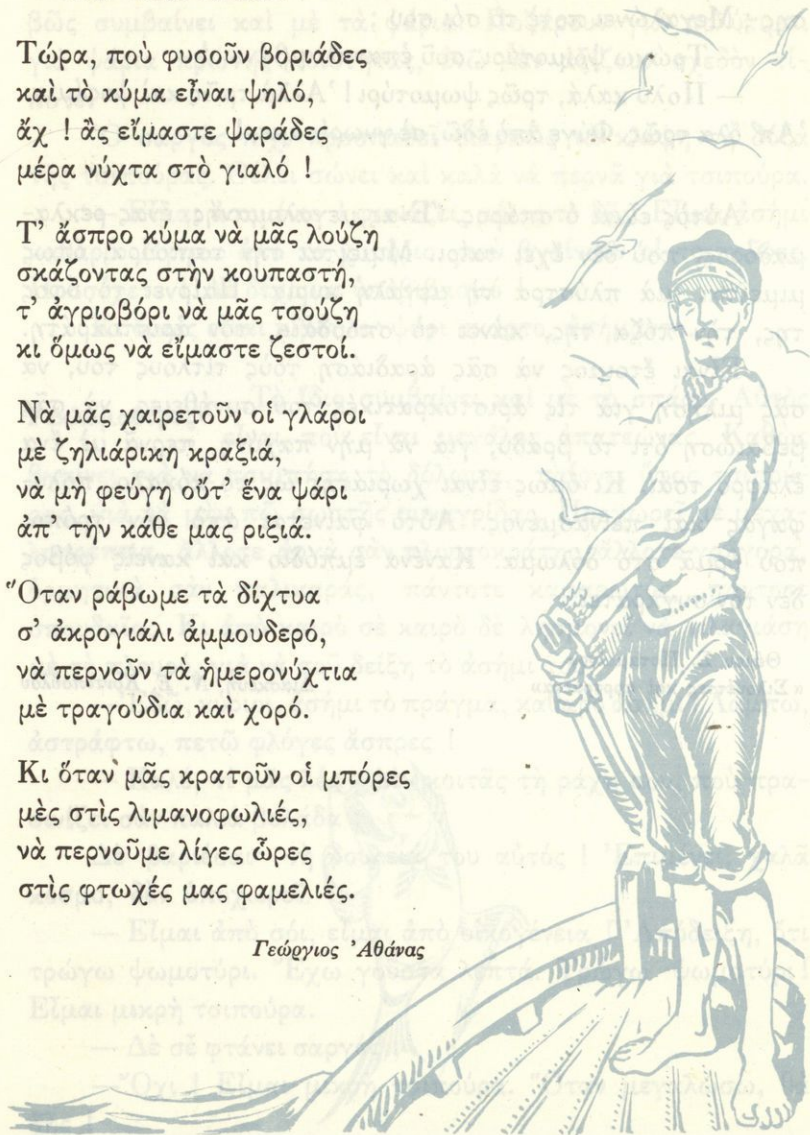 Τώρα, ποὺ φυσοῦν βοριάδες
καὶ τὸ κύμα εἶναι ψηλό,
ἄχ ! ἂς εἴμαστε ψαράδες
μέρα νύχτα στὸ γιαλό !
Τ' ἄσπρο κύμα νὰ μᾶς λούζη
σκάζοντας στὴν κουπαστή,
τ' ἀγριοβόρι νὰ μᾶς τσούζη
κι ὅμως νὰ εἴμαστε ζεστοί.
Νὰ μᾶς χαιρετοῦν οἱ γλάροι
μὲ ζηλιάρικη κραξιά,
νὰ μὴ φεύγη οὔτ' ἕνα ψάρι
ἀπ' τὴν κάθε μας ριξιά.
Ὅταν ράβωμε τὰ δίχτυα
σ' ἀκρογιάλι ἀμμουδερό,
νὰ περνοῦν τὰ ἡμερονύχτια
μὲ τραγούδια καὶ χορό.
Κι ὅταν μᾶς κρατοῦν οἱ μπόρες
μὲς στὶς λιμανοφωλιές,
νὰ περνοῦμε λίγες ὧρες
στὶς φτωχές μας φαμελιές.
Γεώργιος Ἀθάνας